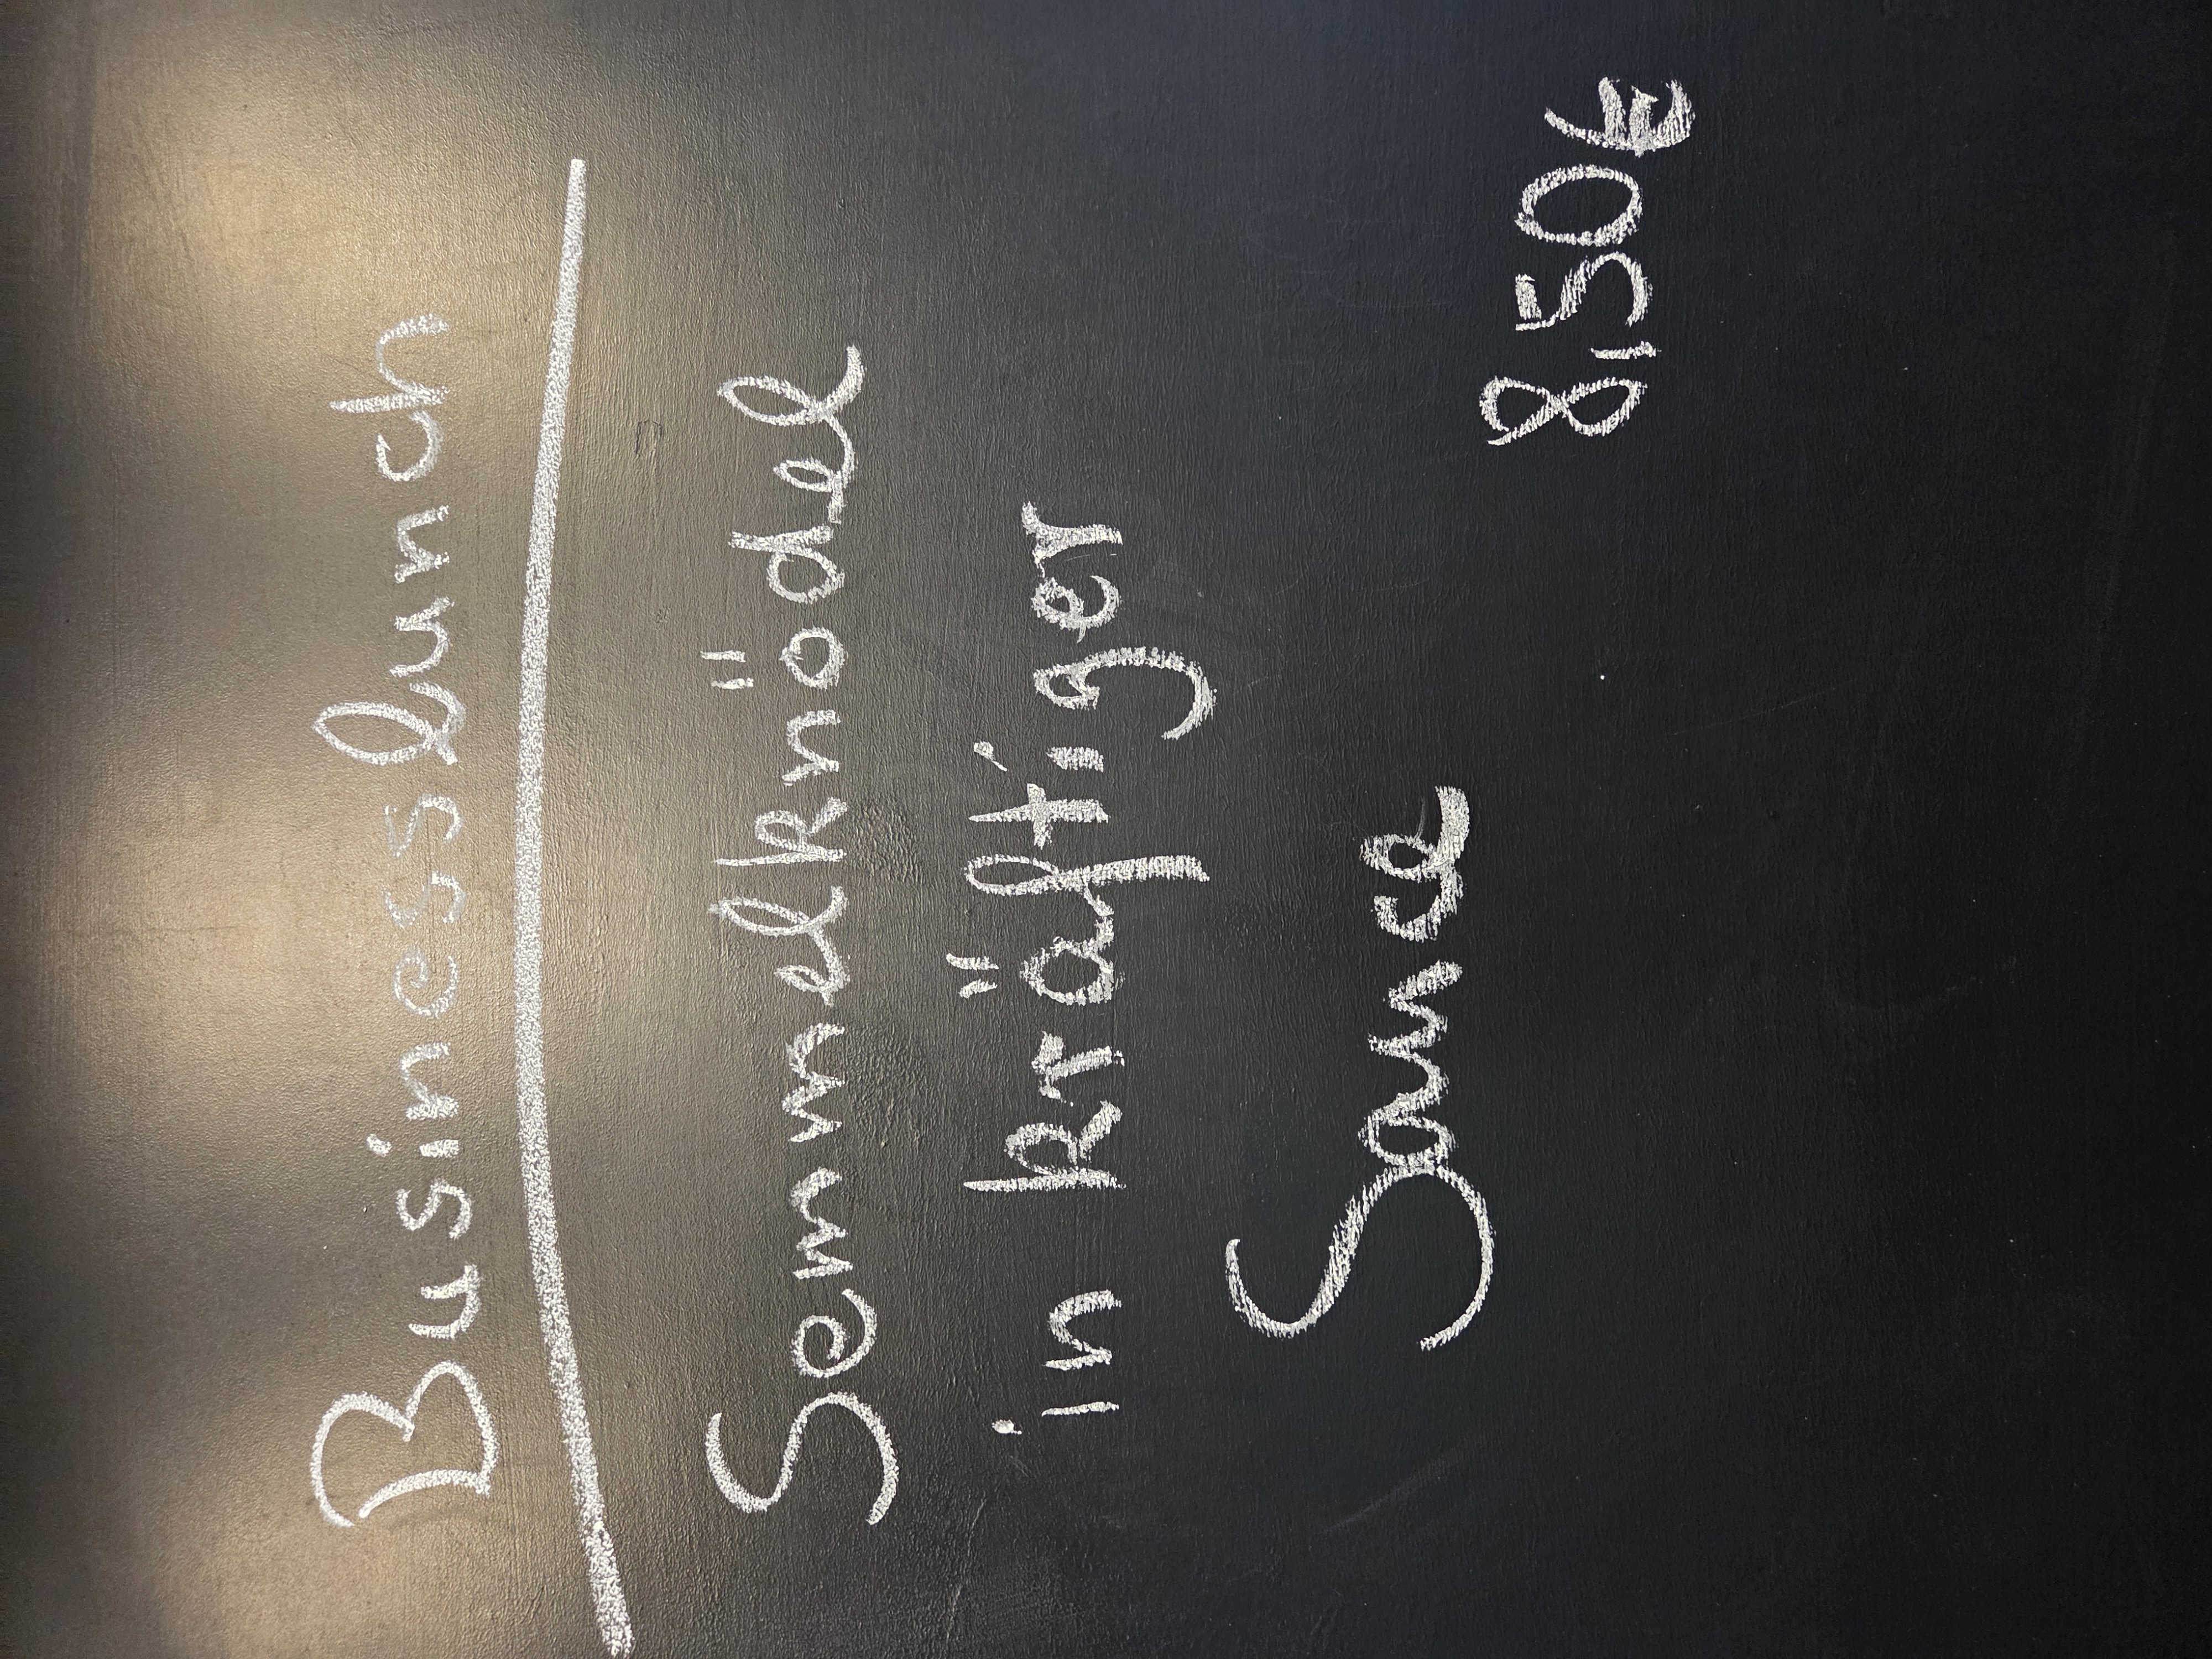 Business lunch
Semmelknödel
in kräftiger
Sauce
8,50€